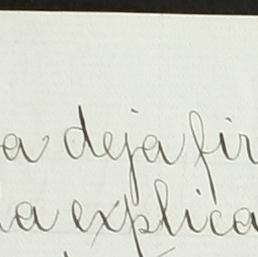 a deja fir
a explica